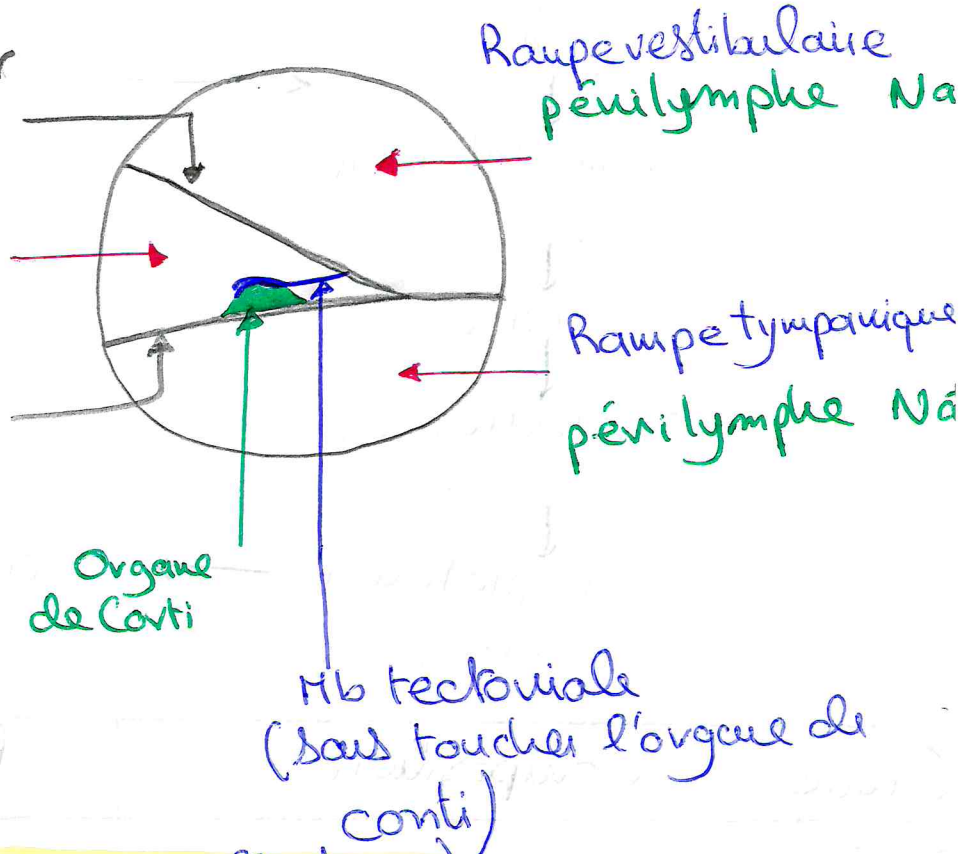 Rampe vestibulaire
périlymphe Na
Rampe tympanique
périlymphe Na
Organe
de Corti
Mb tectoriale
(sans toucher l'organe de
conti)